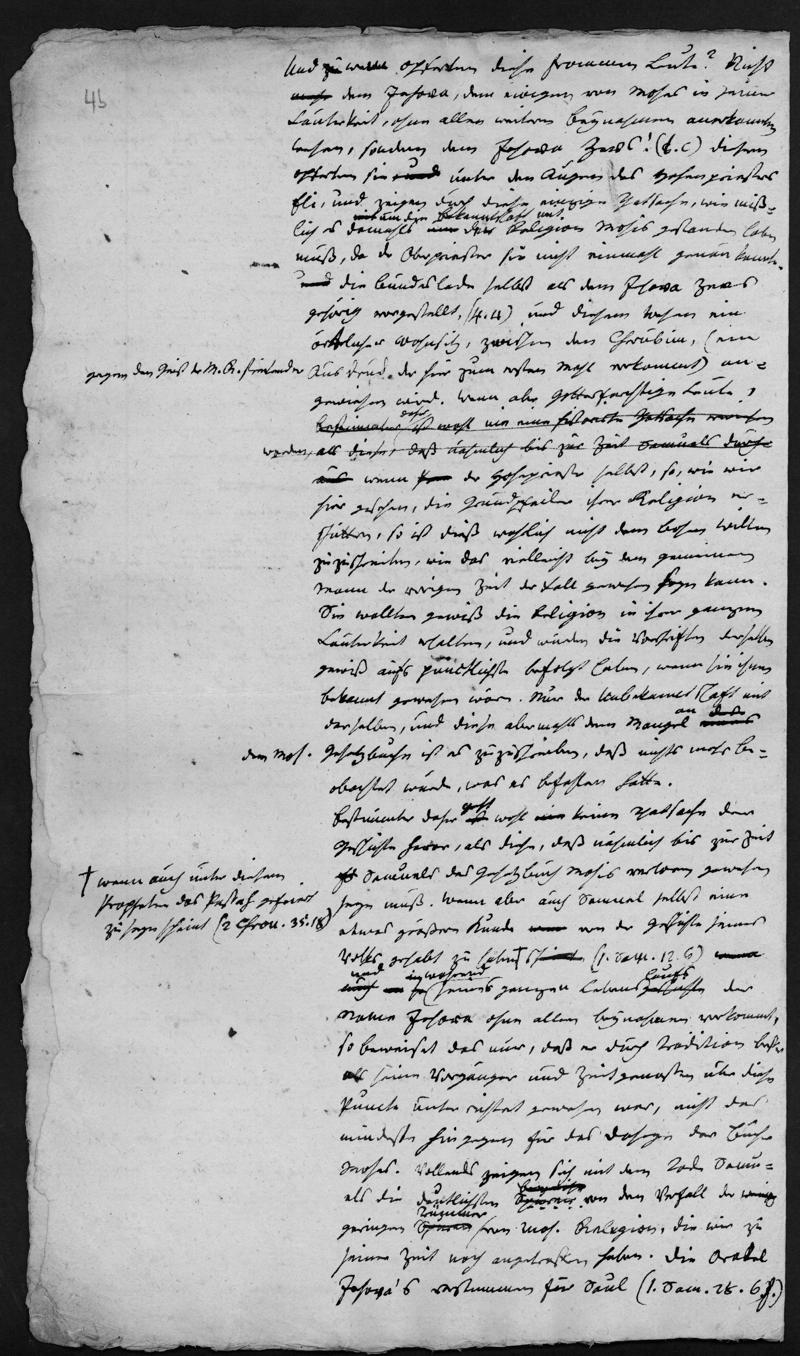 4b
Und zu wem opferten diese frommen Leute? Nicht
mehr dem Jehova, dem einigen von Moses in seiner
Lauterkeit, ohne allen weitern Beynahmen anerkannten
Wesen, sondern dem Jehova Zews! (l. c) diesem
opferten sie und unter den Augen des Hohenpriesters
Eli, und zeigen durch diese einzige Thatsache, wie miß-
lich es damahls um die Bekanntschaft mit der Religion Mosis gestanden haben
muß, da der Oberpriester sie nicht einmahl genau kannte.
und die Bundeslade selbst als dem Jehova Zews
gehörig vorgestellt, (4.4) und diesem Wesen ein
örtlicher Wohnsitz, zwischen den Cherubim, (ein
gegen den Geist der M. R. streitender Ausdruck der hier zum ersten Mahl vorkommt) an-
gewiesen wird. Wenn aber Gottesfürchtige Leute,
Bestimmter daher ist wohl nie eine historische Thatsache erwiesen
worden, als diese, daß nähmlich bis zur Zeit Samuels durch
aus wenn der Hohepriester selbst, so, wie wir
hier gesehen, die Grundpfeiler ihrer Religion er-
schüttern, so ist dieß wahrlich nicht dem bösen Willen
zuzuschreiben, wie das vielleicht bey dem gemeinen
Mann der vorigen Zeit der Fall gewesen seyn kann.
Sie wollten gewiß die Religion in ihrer ganzen
Lauterkeit erhalten, und würden die Vorschriften derselben
gewiß aufs pünctlichste befolgt haben, wenn sie ihnen
bekannt gewesen wären. Nur der Unbekanntschaft mit
derselben, und diese abermahls dem Mangel an
dem Mos. Gesetzbuche ist es zuzuschreiben, daß nichts mehr be-
obachtet wurde, was es befohlen hatte.
Bestimmter daher geht wohl keine Thatsache der
Geschichte hervor, als diese, daß nähmlich bis zur Zeit
Samuels das Gesetzbuch Mosis verloren gewesen
seyn muß. Wenn aber auch Samuel selbst eine
etwas größere Kunde von der Geschichte seines
Volks gehabt zu haben † scheint (1. Sam. 12. 6)
und während seines ganzen Lebenslaufs der
Name Jehova ohne allen Beynahmen vorkommt,
so beweiset das nur, daß er durch Tradition besser
als seine Vorgänger und Zeitgenossen über diese
Puncte unterrichtet gewesen war, nicht das
mindeste hingegen für das Daseyn der Bücher
Moses. Vollends zeigen sich mit dem Tode Samu-
els die deutlichsten Spuren von dem Verfall der
geringen Trümmer von Mos. Religion, die wir zu
seiner Zeit noch angetroffen haben. Die Orakel
Jehova's verstummen für Saul (1. Sam. 28. 6 ff.)
† wenn auch unter diesem
Propheten das Passah gefeiert
zu seyn scheint (2 Chron. 35. 18)